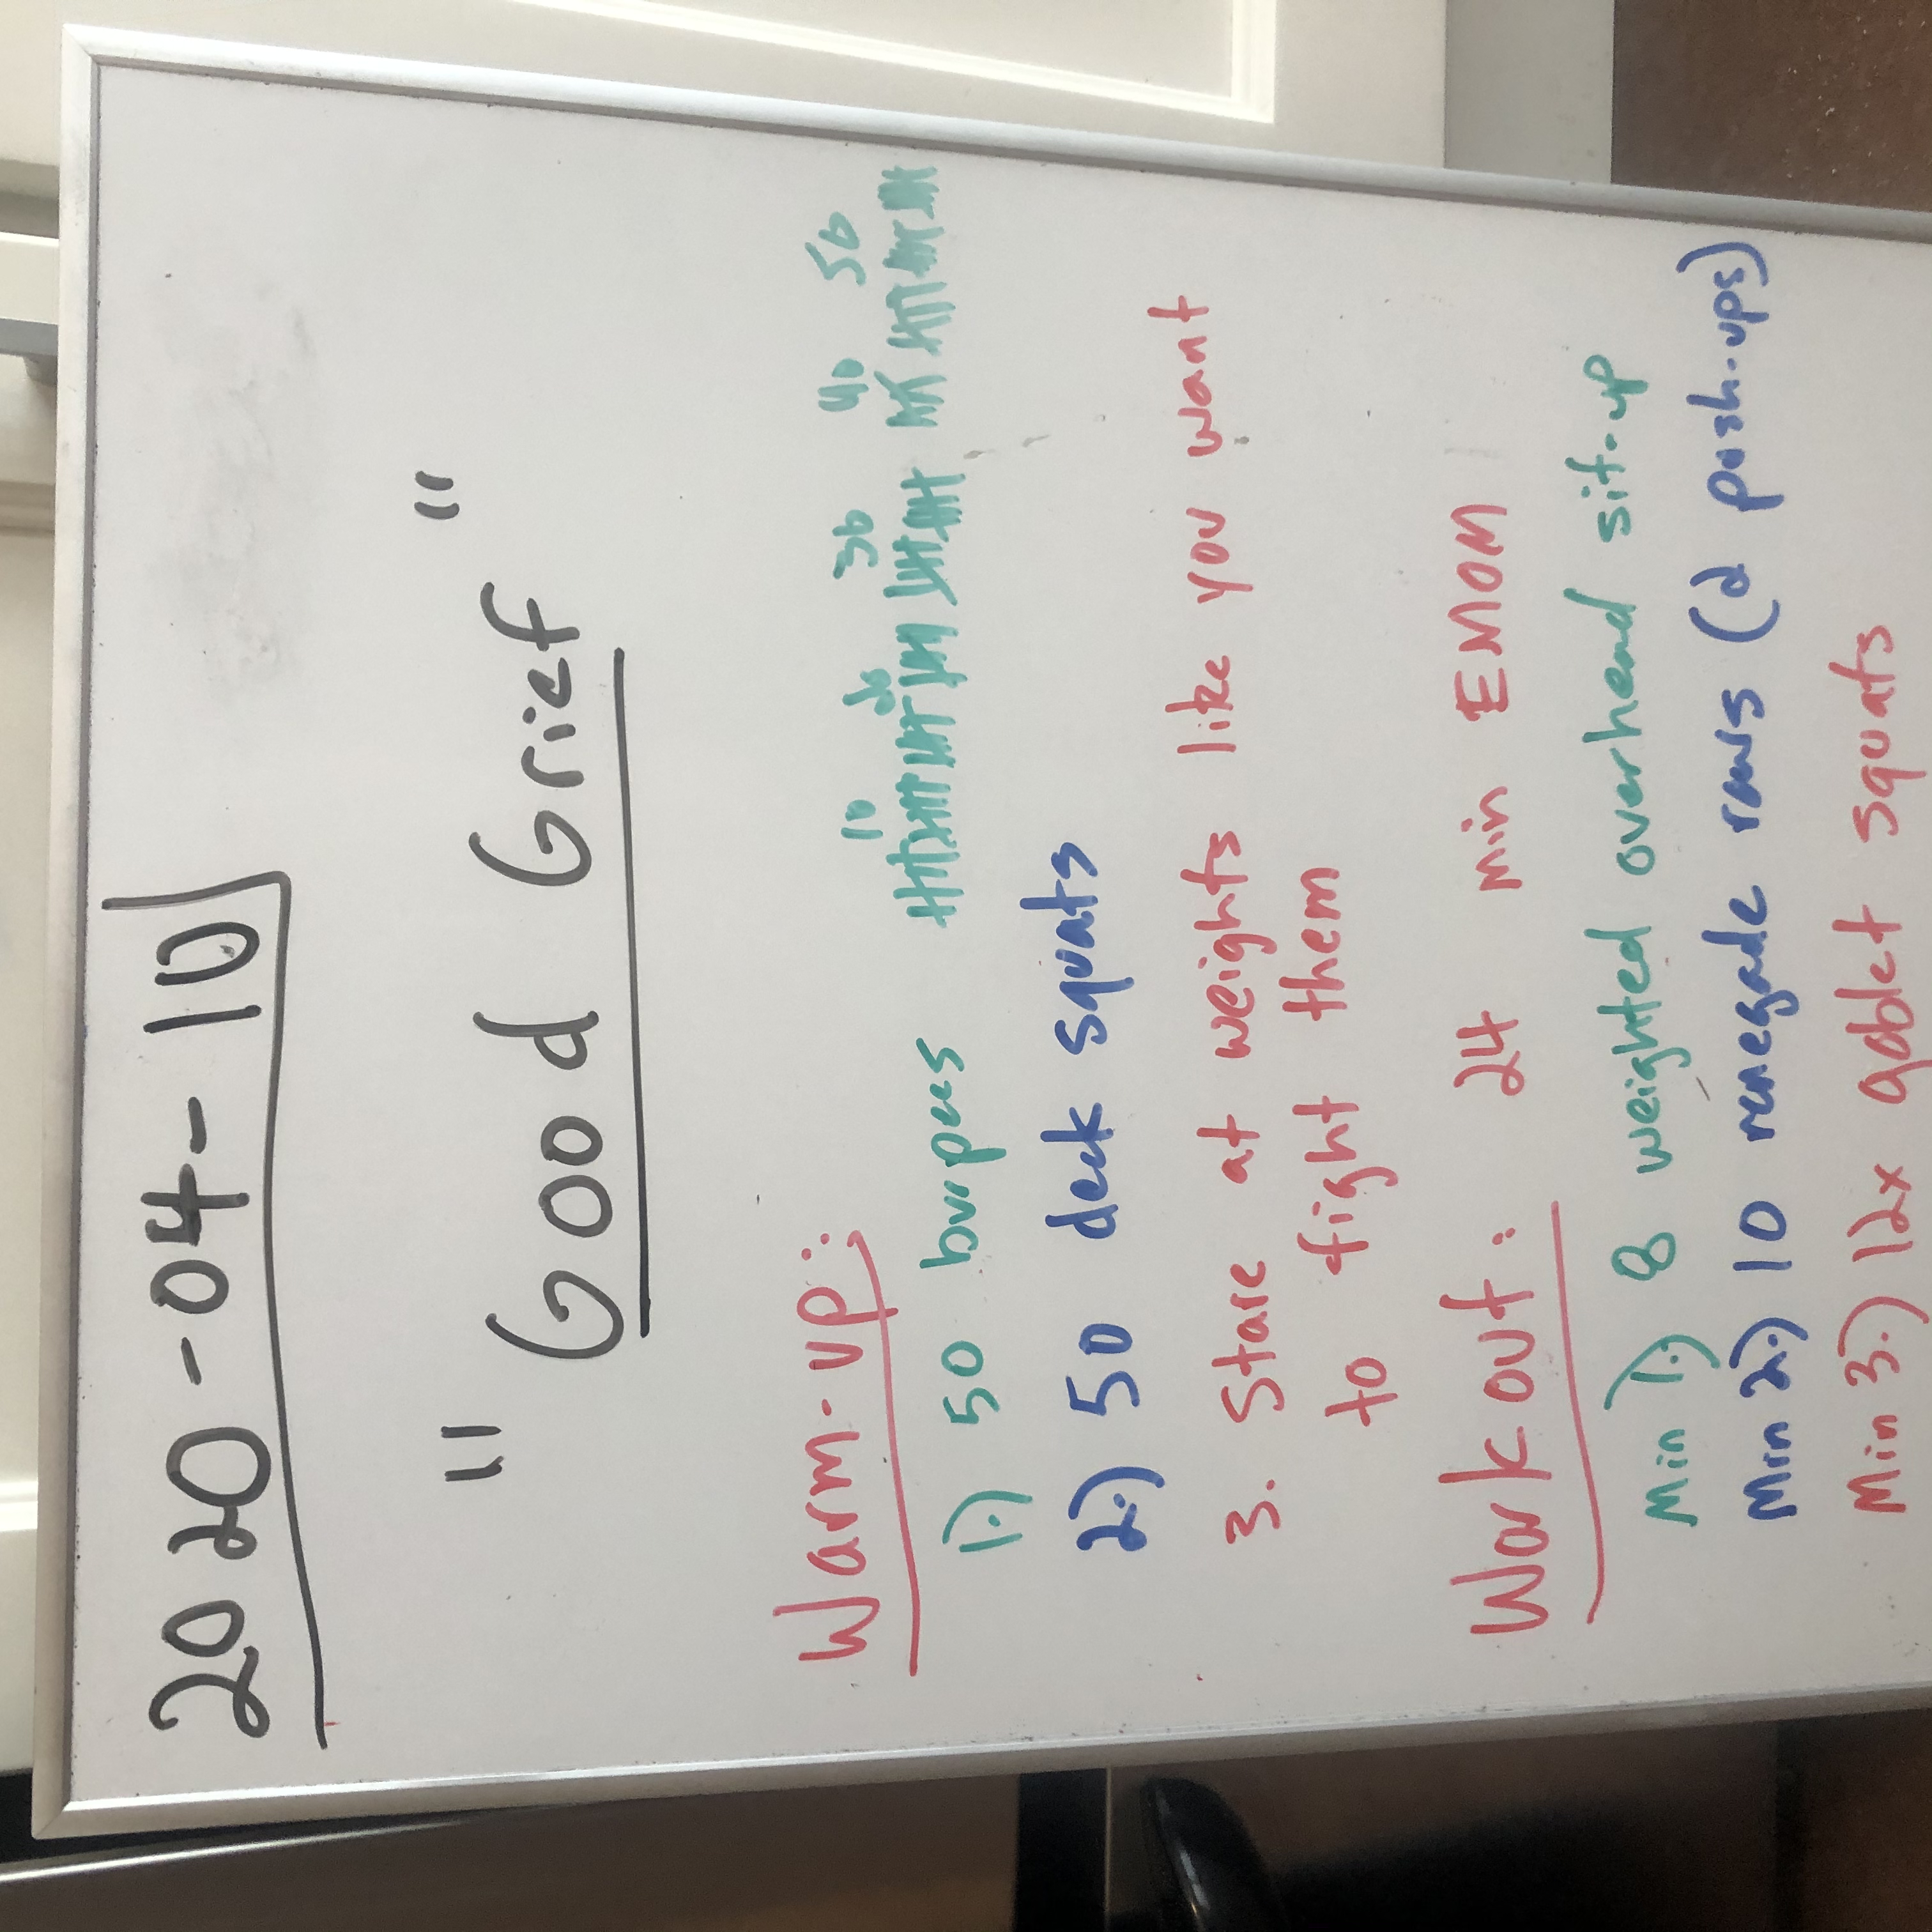 2020-04-10
"Good Grief"
Warm-up:
10 20 30 40 50
1.) 50 burpees
2.) 50 deck squats
3. Stare at weights like you want
to fight them
Workout: 24 min EMOM
Min 1.) 8 weighted overhead sit-up
Min 2.) 10 renegade rows (2 push-ups)
Min 3.) 12x goblet squats